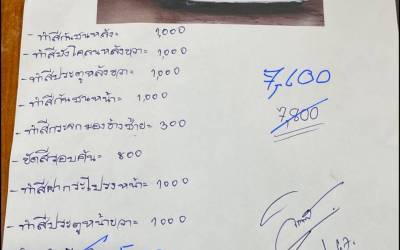 - ทำสีกันชนหลัง= 1,000
- ทำสีบังโคลนหลังขวา= 1,000
- ทำสีประตูหลังขวา= 1,000
- ทำสีกันชนหน้า= 1,000
- ทำสีกระจกมองข้างซ้าย= 300
- ขัดสีรอบคัน= 800
- ทำสีฝากระโปรงหน้า= 1000
- ทำสีประตูหน้าขวา= 1000
7,600
7,800